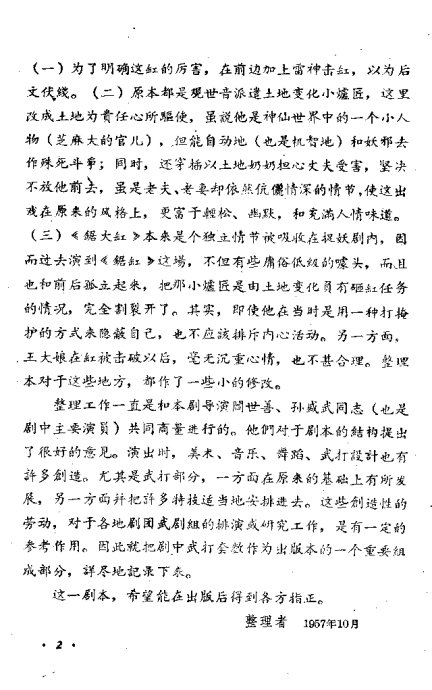 （一）为了明确这缸的厉害，在前边加上雷神击缸，以为后
文伏綫。（二）原本都是观世音派遣土地变化小爐匠，这里
改成土地为責任心所驅使，虽說他是神仙世界中的一个小人
物（芝麻大的官儿），但能自动地（也是机智地）和妖邪去
作殊死斗爭；同时，还穿插以土地奶奶担心丈夫受害，坚决
不放他前去，虽是老夫、老妻却依然伉儷情深的情节，使这出
戏在原来的风格上，更富于輕松、幽默，和充滿人情味道。
（三）《鋸大缸》本来是个独立情节被吸收在捉妖剧内，因
而过去演到《鋸缸》这場，不但有些庸俗低級的噱头，而且
也和前后孤立起来，把那小爐匠是由土地变化負有砸缸任务
的情况，完全割裂开了。其实，即使他在当时是用一种打掩
护的方式来隐蔽自己，也不应該排斥内心活动。另一方面，
王大娘在缸被击破以后，毫无沉重心情，也不甚合理。整理
本对于这些地方，都作了一些小的修改。
整理工作一直是和本剧导演閻世善、孙盛武同志（也是
剧中主要演員）共同商量进行的。他們对于剧本的結构提出
了很好的意見。演出时，美术、音乐、舞蹈、武打設計也有
許多創造。尤其是武打部分，一方面在原来的基础上有所发
展，另一方面并把許多特技适当地安排进去。这些創造性的
劳动，对于各地剧团武剧組的排演或研究工作，是有一定的
参考作用。因此就把剧中武打套数作为出版本的一个重要組
成部分，詳尽地記录下来。
这一剧本，希望能在出版后得到各方指正。
整理者 1957年10月
· 2 ·